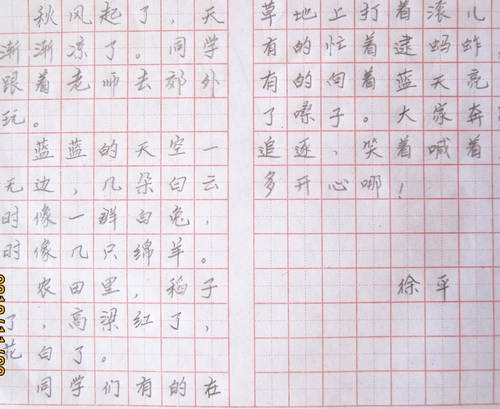 秋风起了，天
渐渐凉了。同学
跟着老师去郊外
玩。
蓝蓝的天空一
无边，几朵白云
时像一群白兔，
时像几只绵羊。
农田里，稻子
了，高梁红了，
花白了。
同学们有的在
草地上打着滚儿
有的忙着逮蚂蚱
有的向着蓝天亮
了嗓子。大家奔
追逐，笑着喊着
多开心哪！
徐平